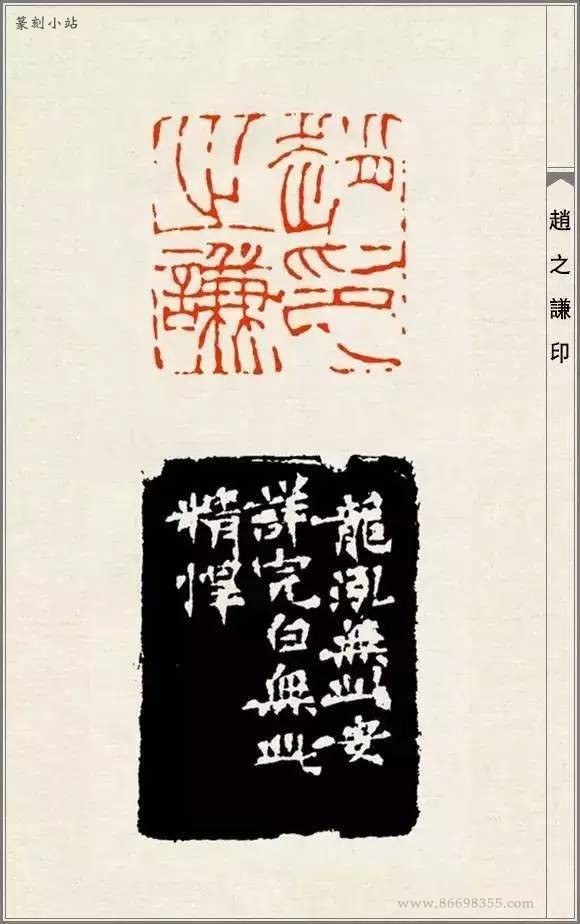 篆刻小站
趙印
之謙
趙之謙印
龍泓無此安
詳完白無此
精悍
www.86698355.com